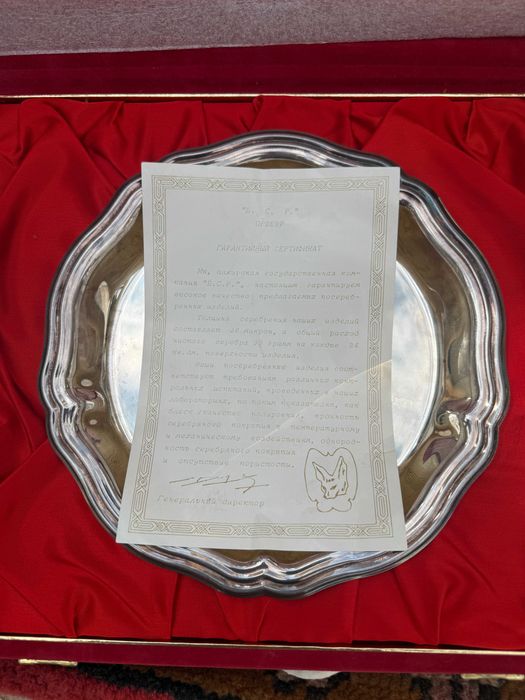 "Е. С. Р."
ПРЛЕВР
ГАРАНТИЙНЫЙ СЕРТИФИКАТ
Мы, алжирская государственная ком-
пания "Е.С.Р.", настоящим гарантируем
высокое качество предлагаемых посереб-
ренных изделий.
Толщина серебрения наших изделий
составляет микрон, а общий расход
чистого серебра грамм на каждые 24
кв.дм. поверхности изделия.
Наши посеребренные изделия соот-
ветствуют требованиям различных конт-
рольных испытаний, проводимых в наших
лабораториях, по таким критериям, как
блеск, качество полировки, прочность
серебряного покрытия к температурному
и механическому воздействиям, однород-
ность серебряного покрытия
и отсутствие пористости.
Генеральный директор